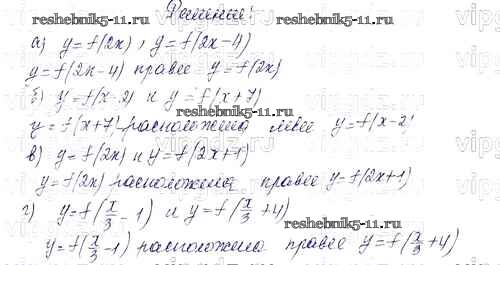 Решение:
reshebnik5-11.ru
а) y=f(2x), y=f(2x-4)
y=f(2x-4) правее y=f(2x)
б) y=f(x-2) и y=f(x+7)
reshebnik5-11.ru
y=f(x+7) расположена левее y=f(x-2)
в) y=f(2x) и y=f(2x+1)
y=f(2x) расположена правее y=f(2x+1)
г) y=f(x/3-1) и y=f(x/3+4)
reshebnik5-11.ru
y=f(x/3-1) расположена правее y=f(x/3+4)